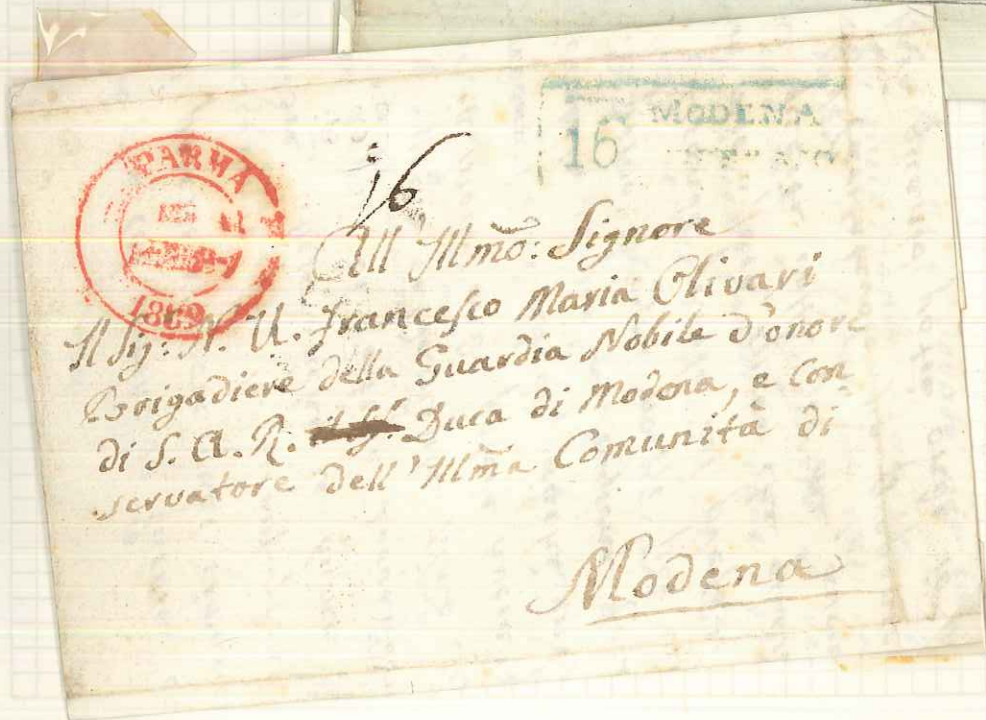 PARMA
1869
16
16 MODENA
All' Illmo: Signore
Il Sig: N. U. Francesco Maria Olivari
Brigadiere della Guardia Nobile d'onore
di S. A. R. Duca di Modena, e Con
servatore dell' Illma Comunità di
Modena